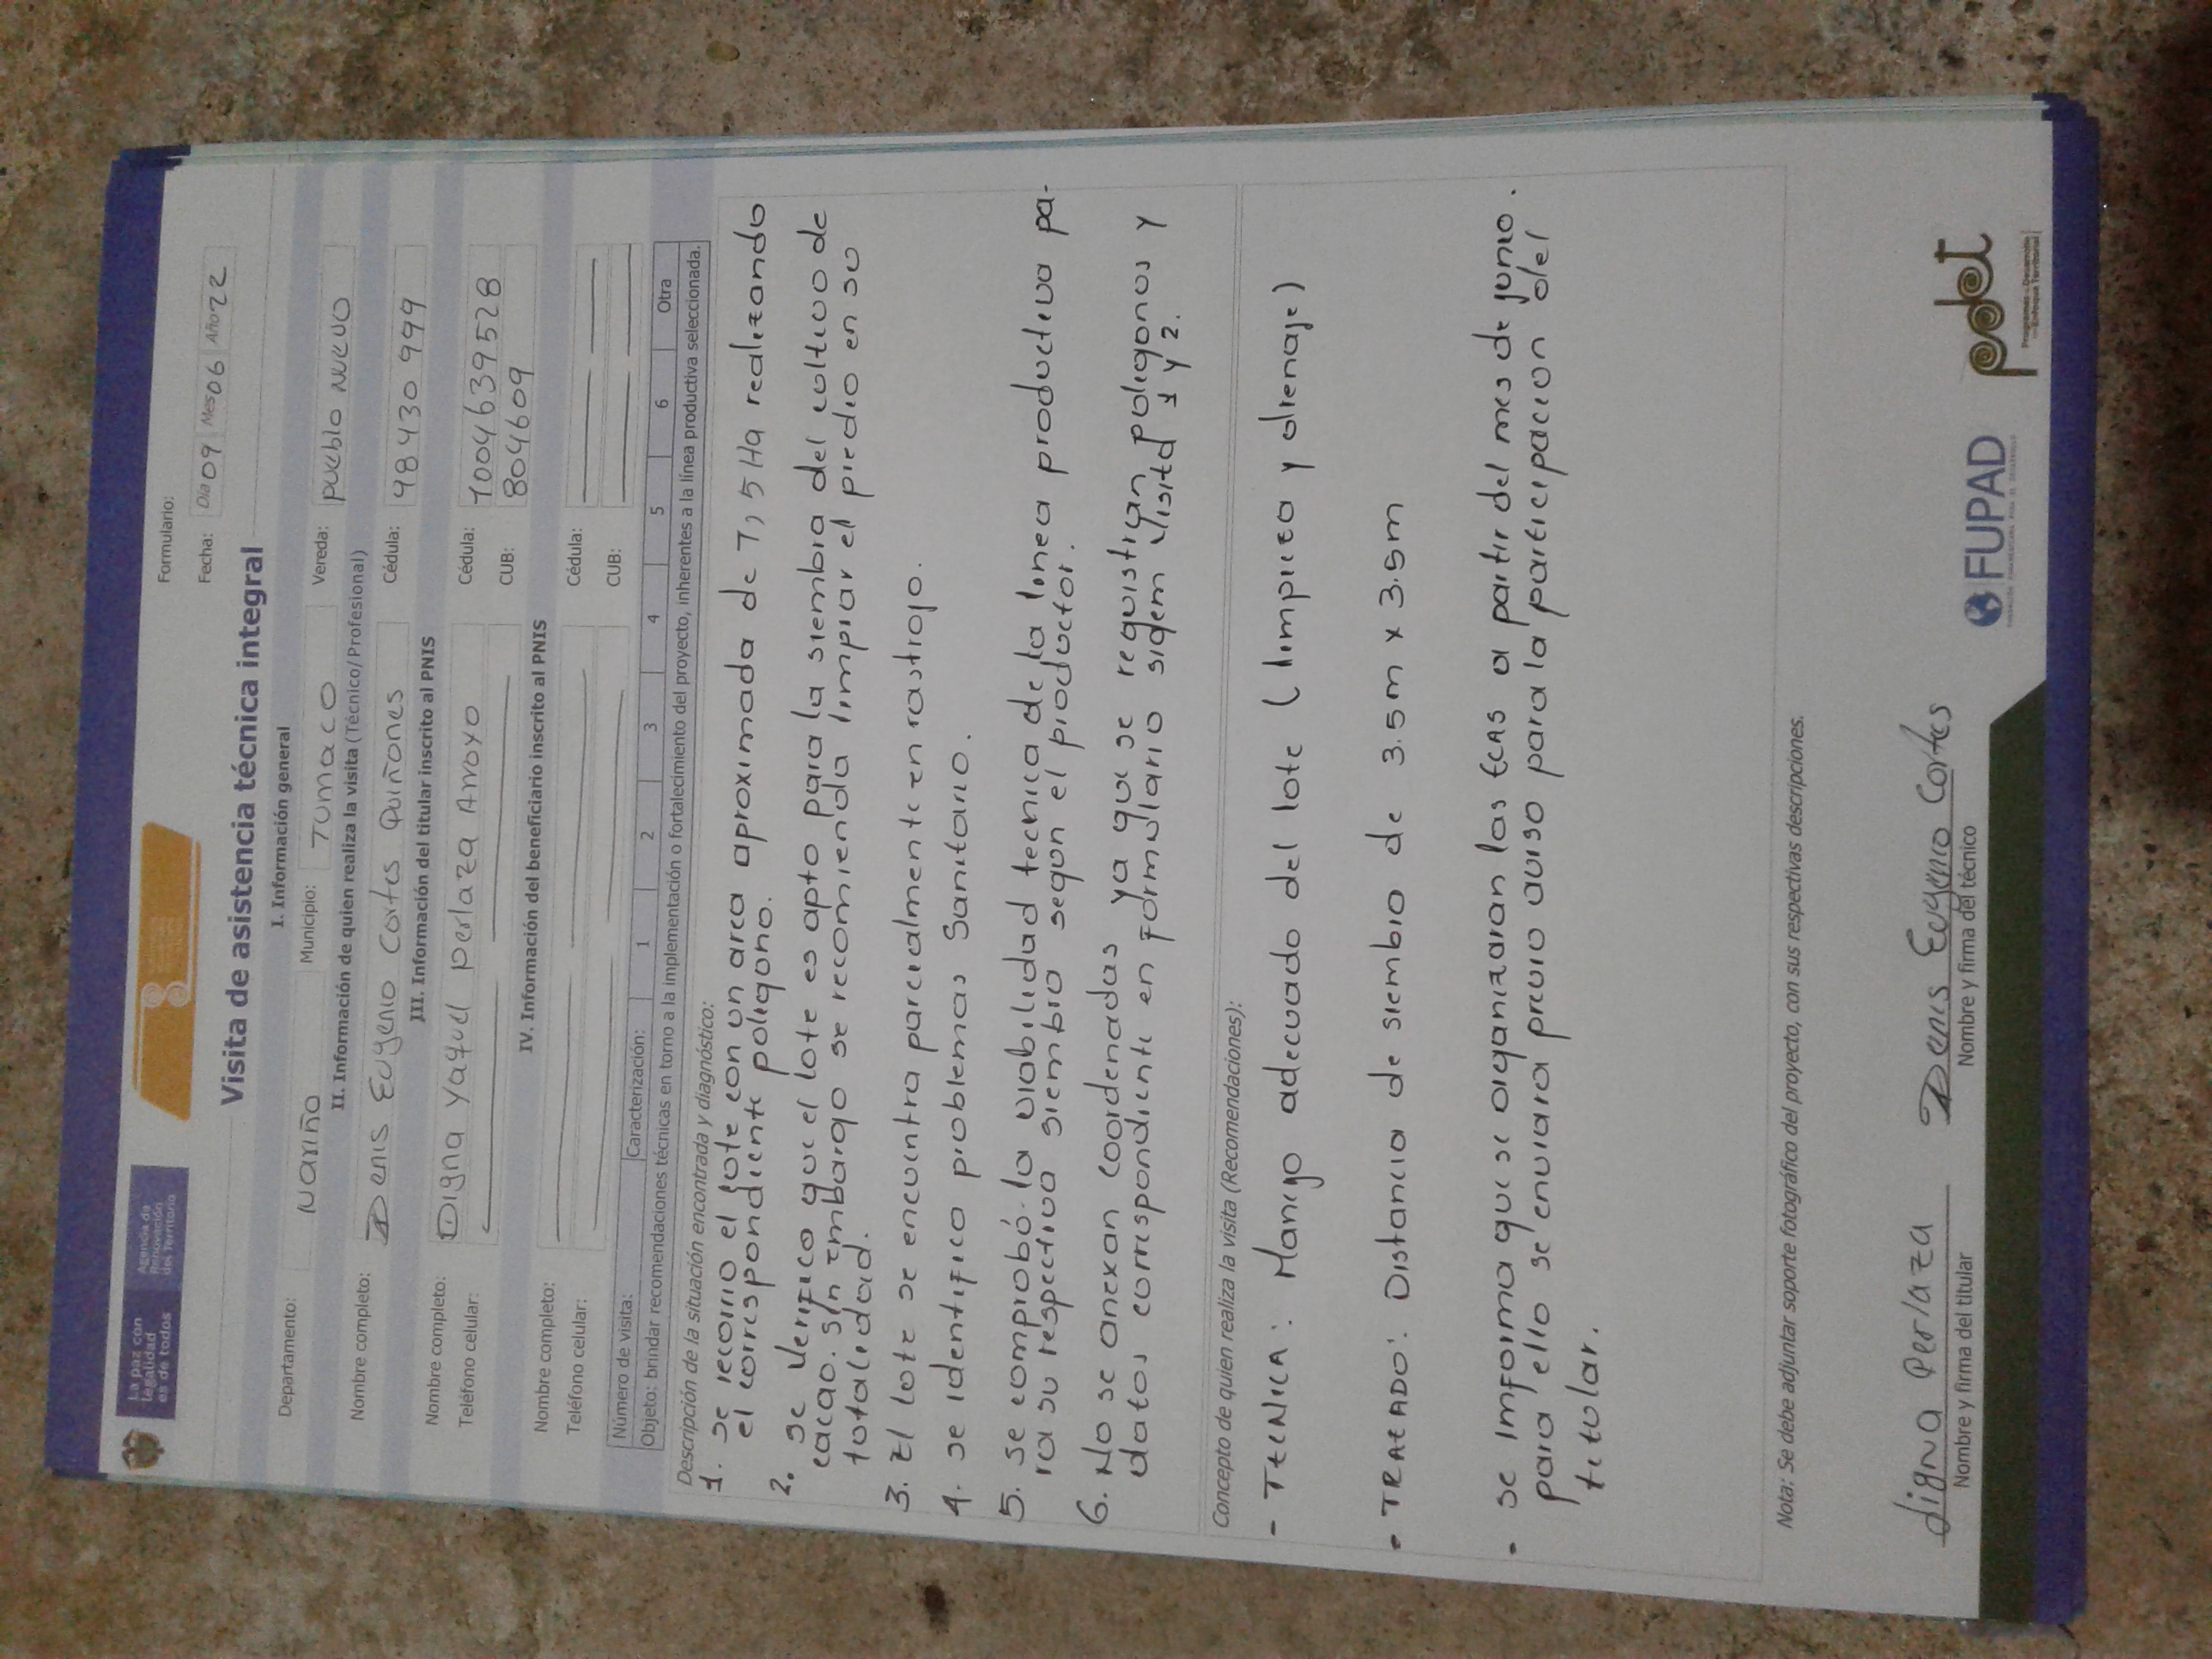 La paz con
legalidad
es de todos
Agencia de
Renovación
del Territorio
Formulario:
Fecha: Día 09 Mes 06 Año 22
Visita de asistencia técnica integral
I. Información general
Departamento: Nariño Municipio: Tumaco Vereda: pueblo Nuevo
II. Información de quien realiza la visita (Técnico/Profesional)
Nombre completo: Denis Eugenio Cortes Quiñones Cédula: 98 430 999
III. Información del titular inscrito al PNIS
Nombre completo: Digna Yaquel perlaza Arroyo Cédula: 1004639528
Teléfono celular: CUB: 804609
IV. Información del beneficiario inscrito al PNIS
Nombre completo: Cédula:
Teléfono celular: CUB:
Número de visita: Caracterización: 1 2 3 4 5 6 Otra
Objeto: brindar recomendaciones técnicas en torno a la implementación o fortalecimiento del proyecto, inherentes a la línea productiva seleccionada.
Descripción de la situación encontrada y diagnóstico:
1. se recorrio el lote con un area aproximada de 7,5 Ha realizando
el correspondiente poligono.
2. se Verifico que el lote es apto para la siembra del cultivo de
cacao. sin embargo se recomienda limpiar el predio en su
totalidad.
3. El lote se encuentra parcialmente en rastrojo.
4. se identifico problemas Sanitario.
5. se comprobó la viabilidad tecnica de la linea productiva pa-
ra su respectiva siembra segun el productor.
6. No se anexan coordenadas ya que se requistran poligonos y
datos correspondiente en formulario sigem visita 1 y 2.
Concepto de quien realiza la visita (Recomendaciones):
- TECNICA: Manejo adecuado del lote (limpieza y drenaje)
- TRAZADO: Distancia de siembra de 3.5m x 3.5m
- se informa que se organizaran las ECAS a partir del mes de junio.
para ello se enviara previo aviso para la participacion del
titular.
Nota: Se debe adjuntar soporte fotográfico del proyecto, con sus respectivas descripciones.
digna Perlaza Denis Eugenio Cortes
Nombre y firma del titular Nombre y firma del técnico
FUPAD
pdet
Programas de Desarrollo
con Enfoque Territorial